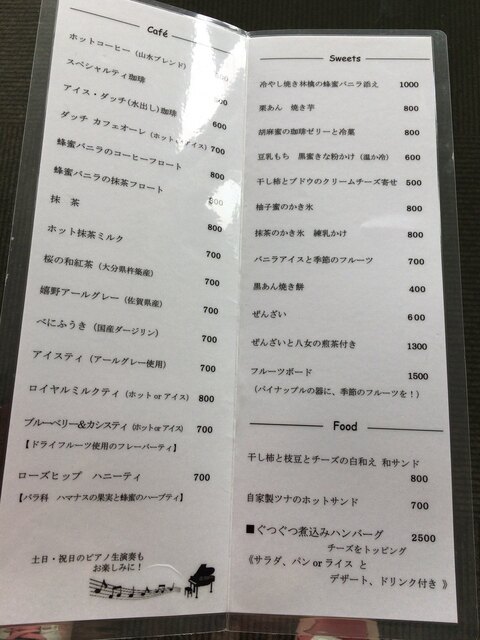 Café
ホットコーヒー（山水ブレンド）
スペシャルティ珈琲
アイス・ダッチ(水出し)珈琲 600
ダッチ カフェオーレ（ホット or アイス） 700
蜂蜜バニラのコーヒーフロート 800
蜂蜜バニラの抹茶フロート 800
抹　茶 800
ホット抹茶ミルク 700
桜の和紅茶（大分県杵築産） 700
嬉野アールグレー（佐賀県産） 700
べにふうき（国産ダージリン） 700
アイスティ（アールグレー使用） 700
ロイヤルミルクティ（ホット or アイス） 800
ブルーベリー&カシスティ（ホット or アイス） 700
【ドライフルーツ使用のフレーバーティ】
ローズヒップ　ハニーティ 700
【バラ科　ハマナスの果実と蜂蜜のハーブティ】
土日・祝日のピアノ生演奏も
お楽しみに！
Sweets
冷やし焼き林檎の蜂蜜バニラ添え 1000
栗あん　焼き芋 800
胡麻蜜の珈琲ゼリーと冷菓 800
豆乳もち　黒蜜きな粉かけ（温か冷） 600
干し柿とブドウのクリームチーズ寄せ 500
柚子蜜のかき氷 800
抹茶のかき氷　練乳かけ 800
バニラアイスと季節のフルーツ 700
黒あん焼き餅 400
ぜんざい 600
ぜんざいと八女の煎茶付き 1300
フルーツボード 1500
（パイナップルの器に、季節のフルーツを！）
Food
干し柿と枝豆とチーズの白和え 和サンド
800
自家製ツナのホットサンド 700
■ぐつぐつ煮込みハンバーグ 2500
チーズをトッピング
《サラダ、パン or ライス と
デザート、ドリンク付き 》